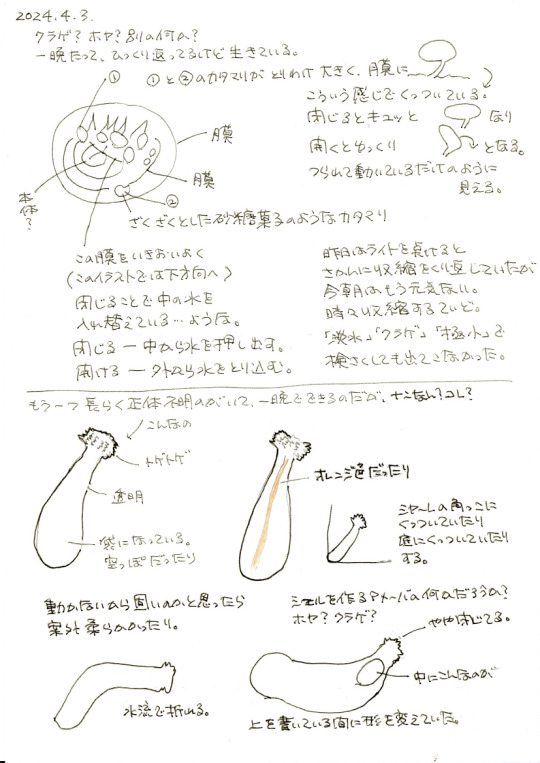 2024.4.3.
クラゲ？ホヤ？別の何か？
一晩たって、ひっくり返ってるけど生きている。
①
①と②のカタマリがとりわけ大きく、膜に
こういう感じでくっついている。
閉じるとキュッと なり
開くとゆっくり となる。
つられて動いているだけのように
見える。
膜
膜
本体？
②
ざくざくとした砂糖菓子のようなカタマリ
この膜をいきおいよく
（このイラストでは下方向へ）
閉じることで中の水を
入れ替えている…ような。
閉じる ー 中から水を押し出す。
開ける ー 外から水をとり込む。
昨日はライトを点けると
さかんに収縮をくり返していたが
今朝はもう元気ない。
時々収縮するていど。
「淡水」「クラゲ」「極小」で
検さくしても出てこなかった。
もう一つ長らく正体不明のがいて、一晩でできるのだが、ナニなん？コレ？
こんなの
トゲトゲ
透明
袋になっている。
空っぽだったり
オレンジ色だったり
シャーレの角っこに
くっついていたり
底にくっついていたり
する。
動かないから固いのかと思ったら
案外柔らかかったり。
水流で折れる。
シェルを作るアメーバの何かだろうか？
ホヤ？クラゲ？
やや閉じてる。
中にこんなのが
上を書いている間に形を変えていた。